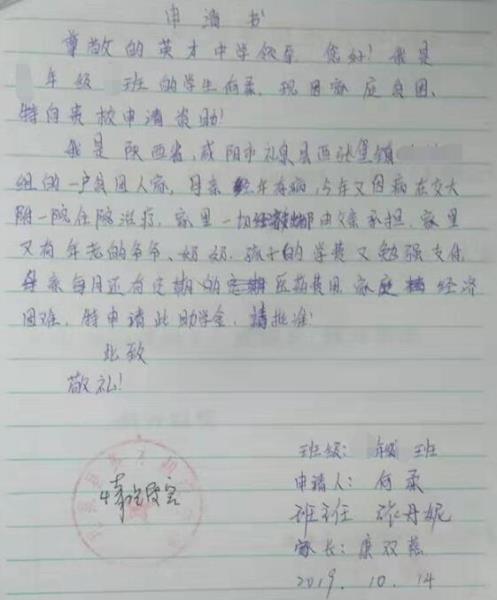 申请书
尊敬的英才中学领导，您好！我是
年级 班的学生何柔，现因家庭贫困，
特向贵校申请资助！
我是陕西省，咸阳市礼泉县西张堡镇
组的一户贫困人家，母亲经年有病，今年又因病在交大
附一院住院治疗，家里一切都由父亲承担，家里
又有年老的爷爷、奶奶，孩子的学费又勉强支付
母亲每月还有定期的医药费用家庭经济
困难，特申请此助学金，请批准！
此致
敬礼！
班级： 年级 班
申请人：何柔
班主任 张丹妮
家长：康双燕
情况属实
2019.10.14